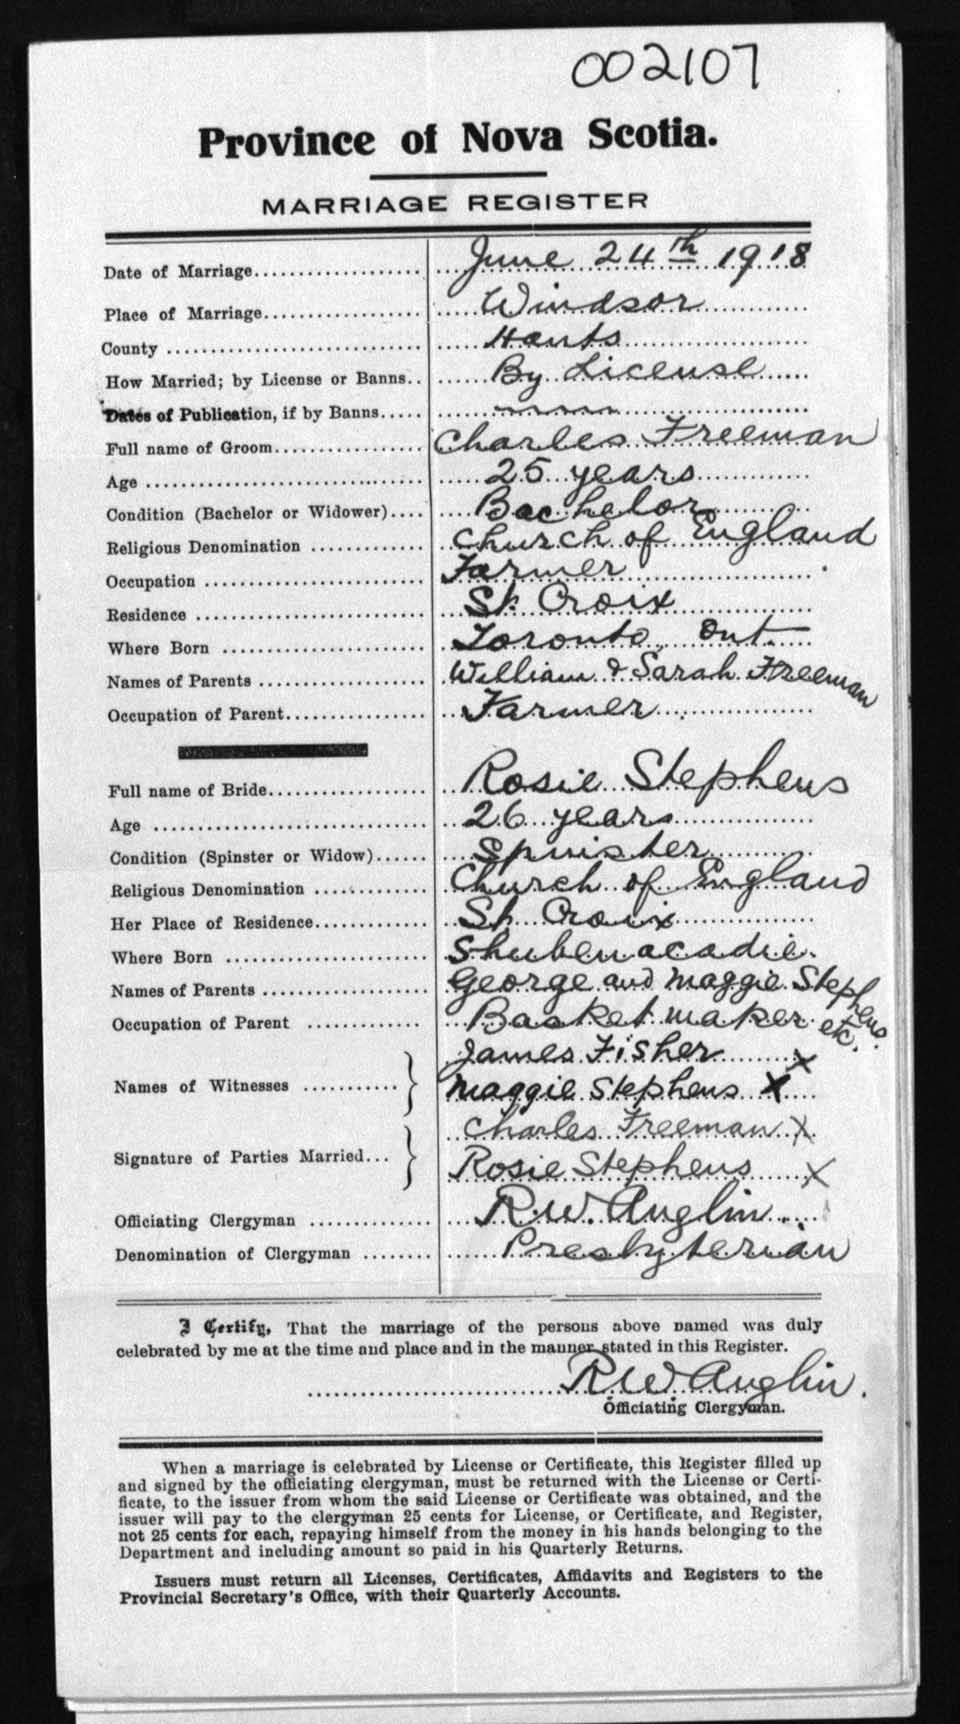 002107
Province of Nova Scotia.
MARRIAGE REGISTER
Date of Marriage.................... June 24th 1918
Place of Marriage................... Windsor
County ............................. Hants
How Married; by License or Banns.. By License
Dates of Publication, if by Banns.....
Full name of Groom................. Charles Freeman
Age ............................. 25 years
Condition (Bachelor or Widower).... Bachelor
Religious Denomination ............. Church of England
Occupation ......................... Farmer
Residence .......................... St. Croix
Where Born ....................... Toronto, Ont.
Names of Parents ................... William & Sarah Freeman
Occupation of Parent................ Farmer
Full name of Bride.................. Rosie Stephens
Age ............................... 26 years
Condition (Spinster or Widow)...... Spinster
Religious Denomination ............. Church of England
Her Place of Residence............. St. Croix
Where Born ....................... Shubenacadie.
Names of Parents ................... George and Maggie Stephens.
Occupation of Parent ............. Basket maker etc.
James Fisher X
Names of Witnesses ........... } Maggie Stephens X
Charles Freeman X
Signature of Parties Married... } Rosie Stephens X
Officiating Clergyman .............. R.W. Anglin
Denomination of Clergyman ........ Presbyterian
I Certify, That the marriage of the persons above named was duly
celebrated by me at the time and place and in the manner stated in this Register.
R W Anglin.
Officiating Clergyman.
When a marriage is celebrated by License or Certificate, this Register filled up
and signed by the officiating clergyman, must be returned with the License or Certi-
ficate, to the issuer from whom the said License or Certificate was obtained, and the
issuer will pay to the clergyman 25 cents for License, or Certificate, and Register,
not 25 cents for each, repaying himself from the money in his hands belonging to the
Department and including amount so paid in his Quarterly Returns.
Issuers must return all Licenses, Certificates, Affidavits and Registers to the
Provincial Secretary's Office, with their Quarterly Accounts.